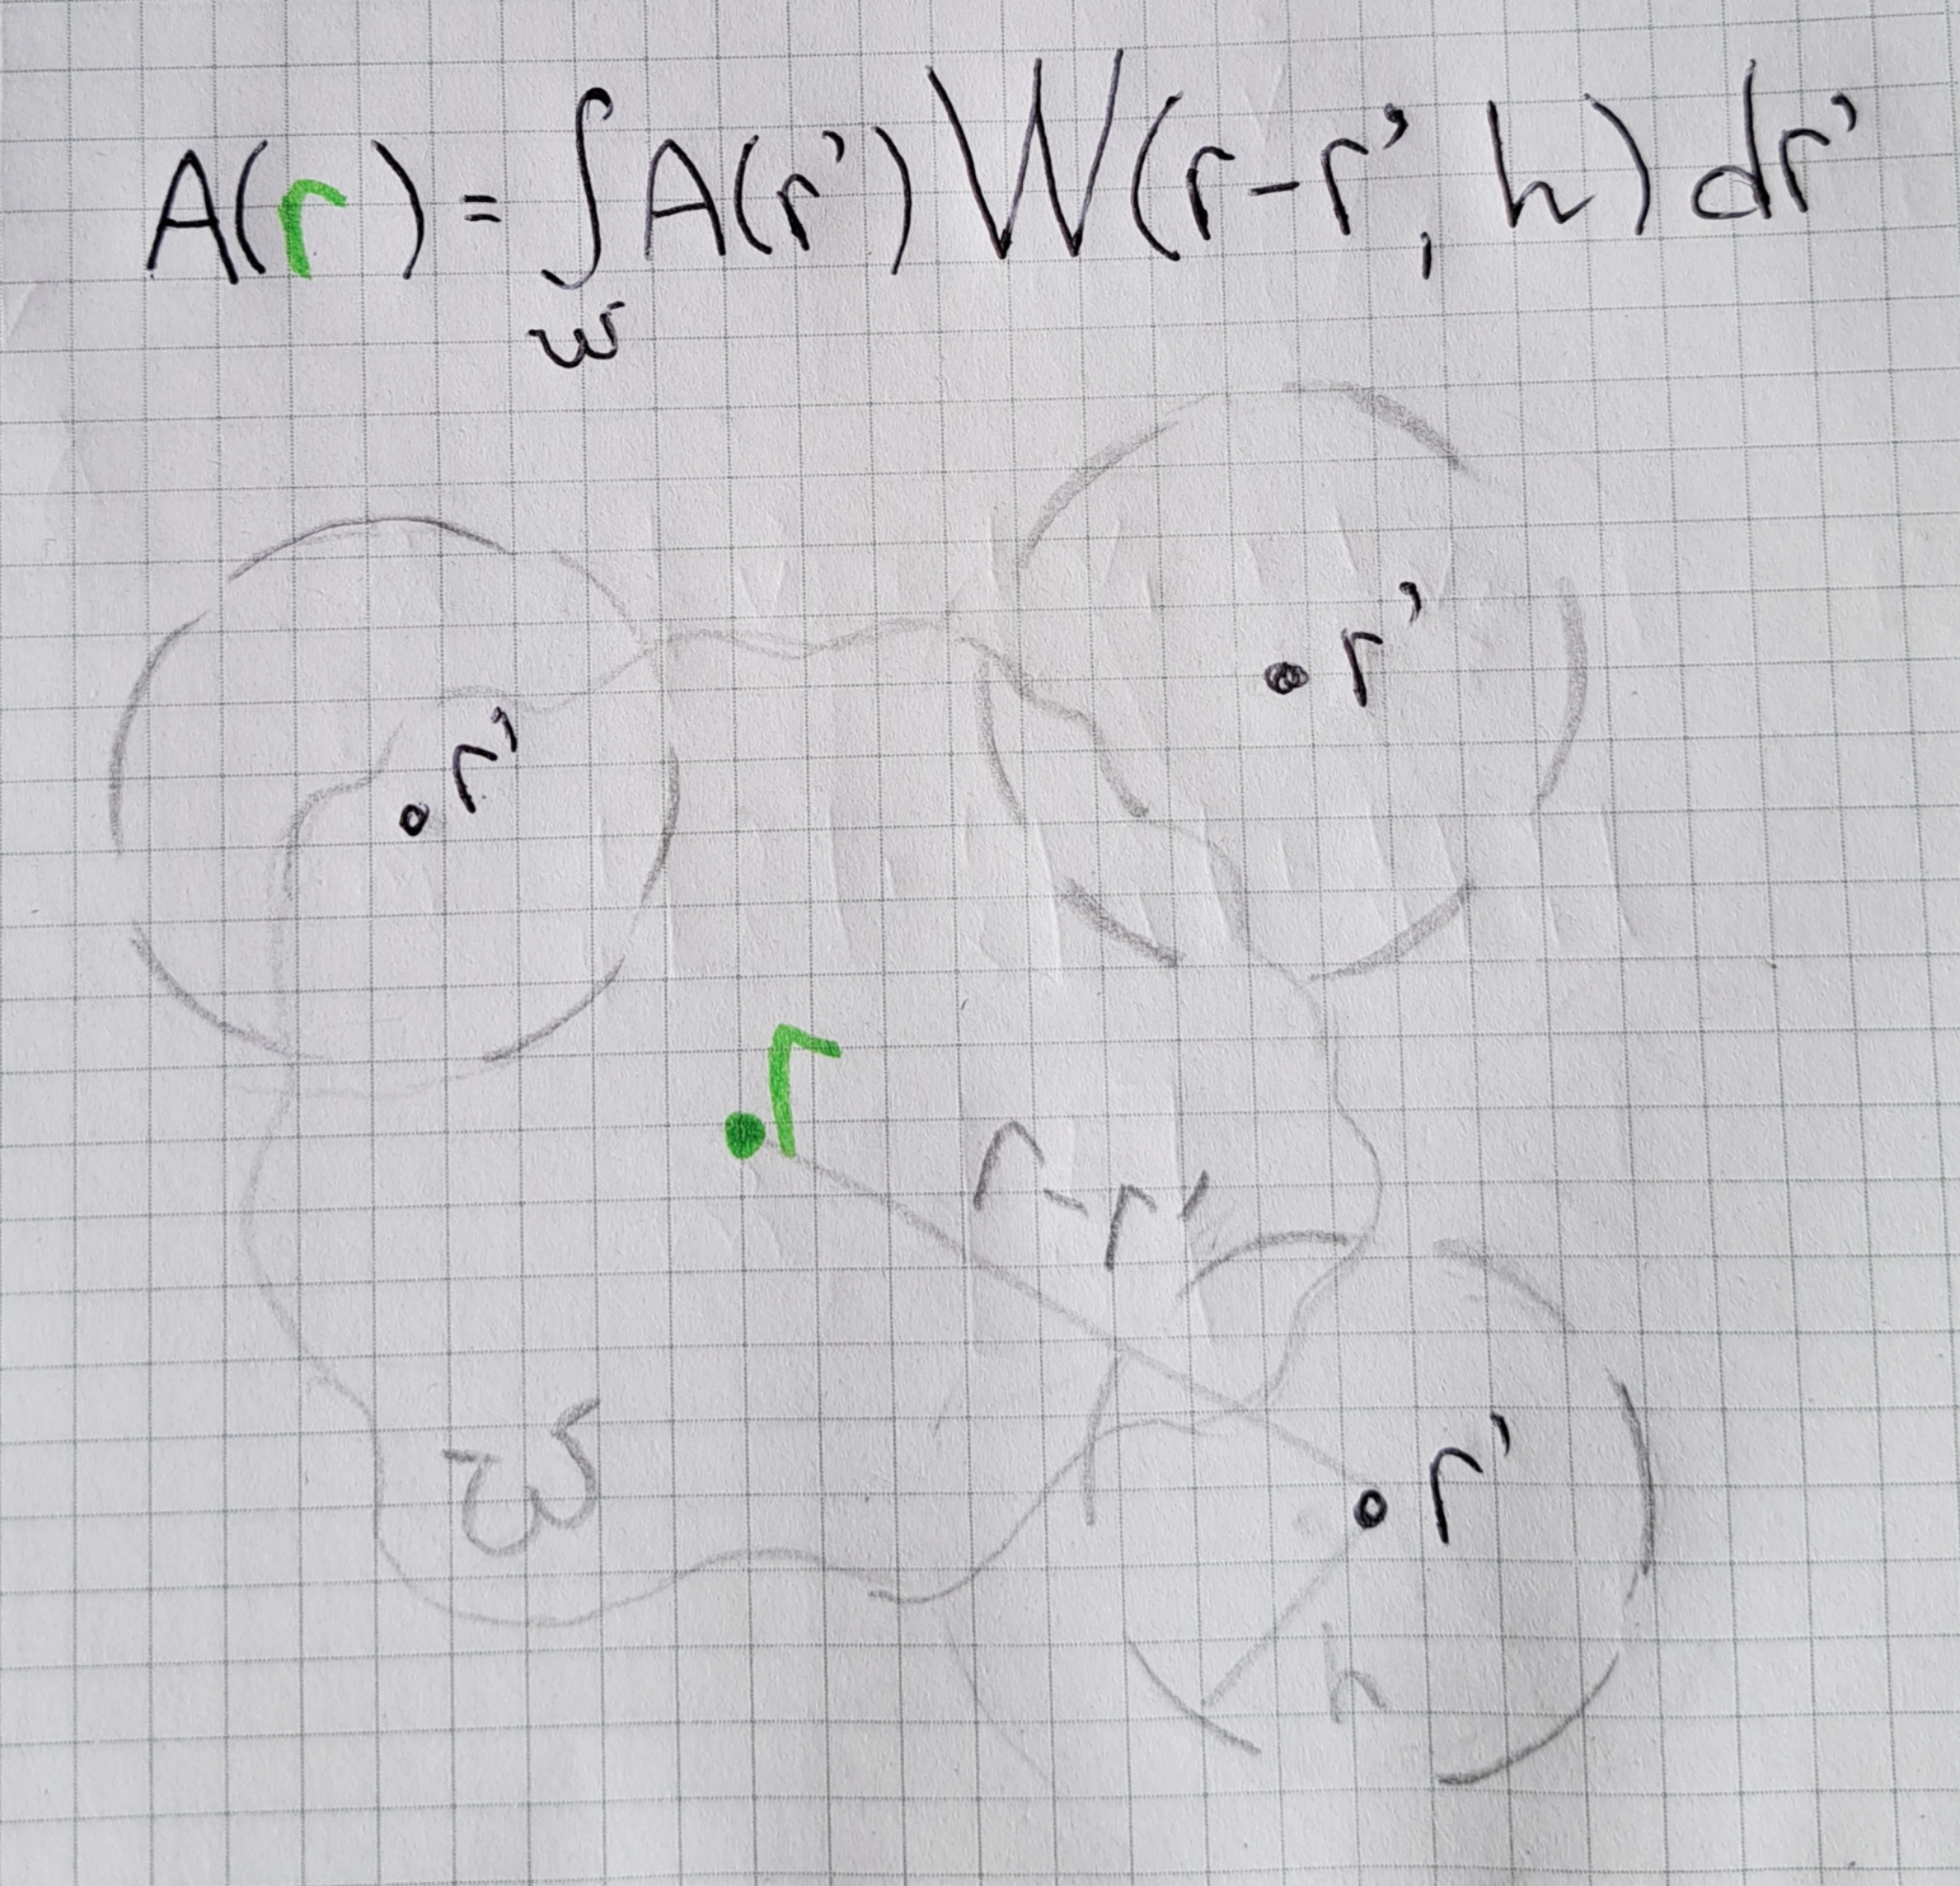 A(r) = ∫ A(r') W(r-r', h) dr'
w
r'
r'
r
r-r'
w
r'
h